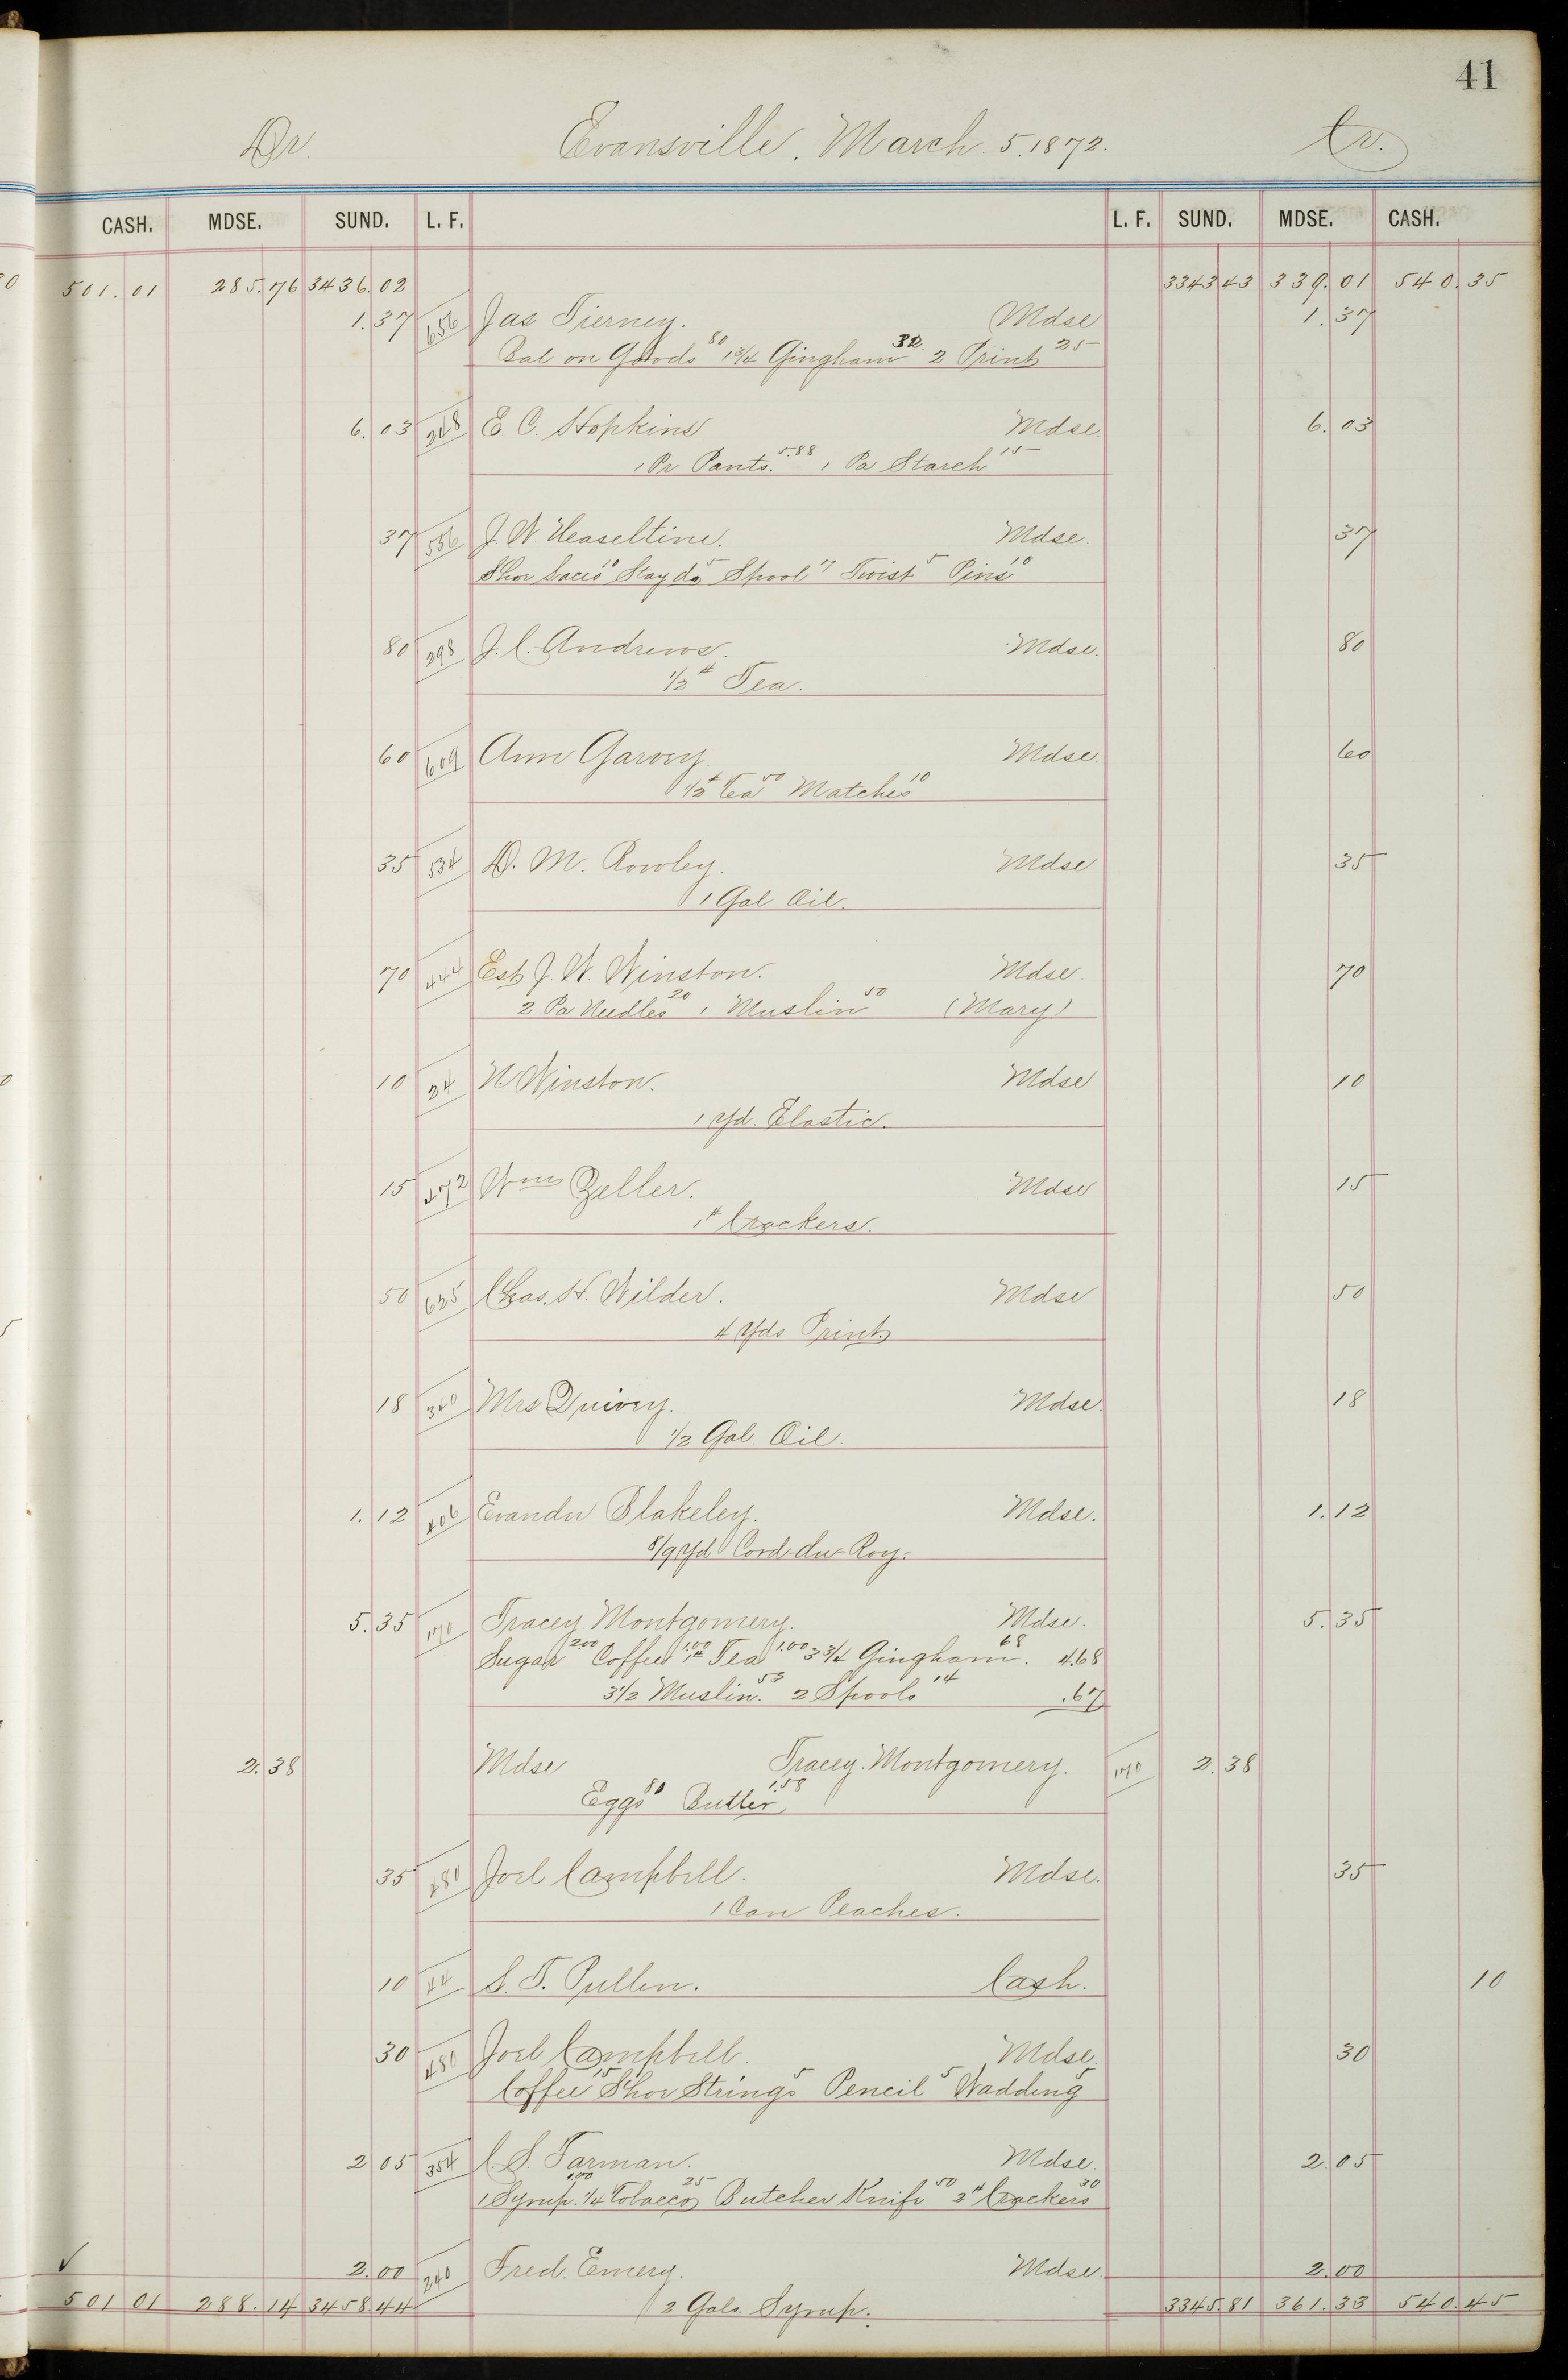 41
Dr. Evansville, March. 5. 1872. Cr.
CASH. MDSE. SUND. L. F. L. F. SUND. MDSE. CASH.
501.01 285.76 3436.02 3343 43 339.01 540.35
1.37 656 Jas Tierney. Mdse 1.37
Bal on Goods 80 1 3/4 Gingham 32 2 Print 25
6.03 248 E. C. Hopkins Mdse. 6.03
1 Pr Pants. 5.88 1 Pa Starch 15
37 556 J. W. Heaseltine. Mdse. 37
Shoe Laces 10 Stay do 5 Spool 7 Twist 5 Pins 10
80 298 J. C. Andrews. Mdse. 80
1/2 # Tea.
60 609 Ann Garvey. Mdse. 60
1/2 # Tea 50 Matches 10
35 534 D. M. Rowley. Mdse 35
1 Gal Oil.
70 444 Est J. W. Winston. Mdse. 70
2 Pa Needles 20 1 Muslin 50 (Mary)
10 24 N Winston. Mdse 10
1 Yd. Elastic.
15 472 Wm Zeller. Mdse 15
1 # Crackers.
50 625 Chas. H. Wilder. Mdse 50
4 Yds Print
18 340 Mrs Quivey. Mdse. 18
1/2 Gal Oil.
1.12 406 Evander Blakeley. Mdse. 1.12
8/9 Yd Cord-du-Roy.
5.35 170 Tracey Montgomery. Mdse. 5.35
Sugar 2.00 Coffee 1.00 1 # Tea 1.00 3 3/4 Gingham. 68 4.68
3 1/2 Muslin. 53 2 Spools 14 .67
2.38 Mdse Tracey Montgomery. 170 2.38
Eggs 80 Butter 1.58
35 480 Joel Campbell. Mdse. 35
1 Can Peaches.
10 44 S. T. Pullen. Cash. 10
30 480 Joel Campbell. Mdse. 30
Coffee 15 Shoe Strings 5 Pencil 5 Wadding 5
2 05 354 C. S. Farman. Mdse. 2.05
1 Syrup. 1.00 1/4 Tobacco 25 Butcher Knife 50 2 # Crackers 30
✓ 2.00 240 Fred. Emery. Mdse 2.00
501 01 288.14 3458.44 2 Gals. Syrup. 3345.81 361.33 540.45